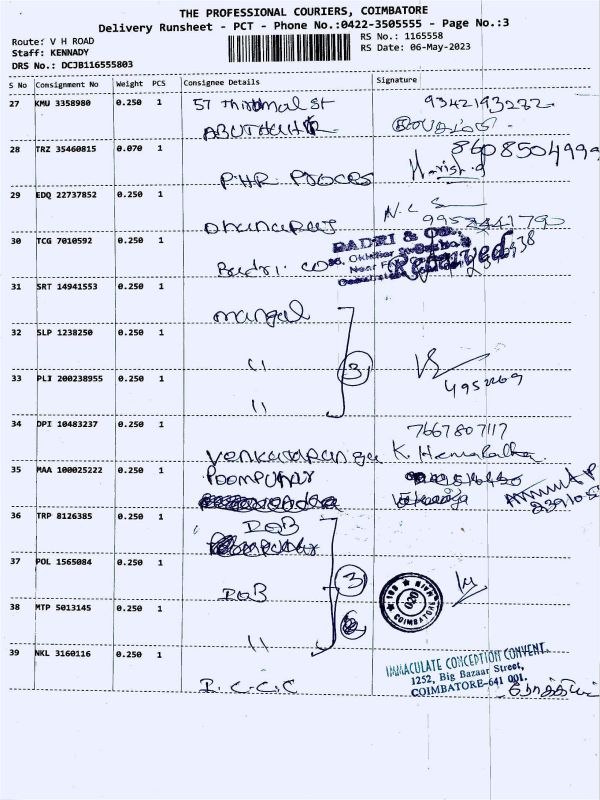 THE PROFESSIONAL COURIERS, COIMBATORE
Delivery Runsheet - PCT - Phone No.:0422-3505555 - Page No.:3
Route: V H ROAD
Staff: KENNADY
DRS No.: DCJB116555803
RS No.: 1165558
RS Date: 06-May-2023
S No Consignment No Weight PCS Consignee Details Signature
27 KMU 3358980 0.250 1 57 Thirumal St 9342193232
28 TRZ 35460815 0.070 1 8608504999
P.H.R PROCES Harish.g
29 EDQ 22737852 0.250 1
30 TCG 7010592 0.250 1 BADRI & CO.
Badri. Co Received
31 SRT 14941553 0.250 1
mangal
32 SLP 1238250 0.250 1
" 3
33 PLI 200238955 0.250 1 4952269
"
34 DPI 10483237 0.250 1 7667807117
K. Hemalatha
35 MAA 100025222 0.250 1 Poompuhar
36 TRP 8126385 0.250 1 IOB
37 POL 1565084 0.250 1 3
IOB
COIMBATORE
38 MTP 5013145 0.250 1
"
39 NKL 3160116 0.250 1 IMMACULATE CONCEPTION CONVENT.
1252, Big Bazaar Street,
COIMBATORE-641 001.
I.C.C.C